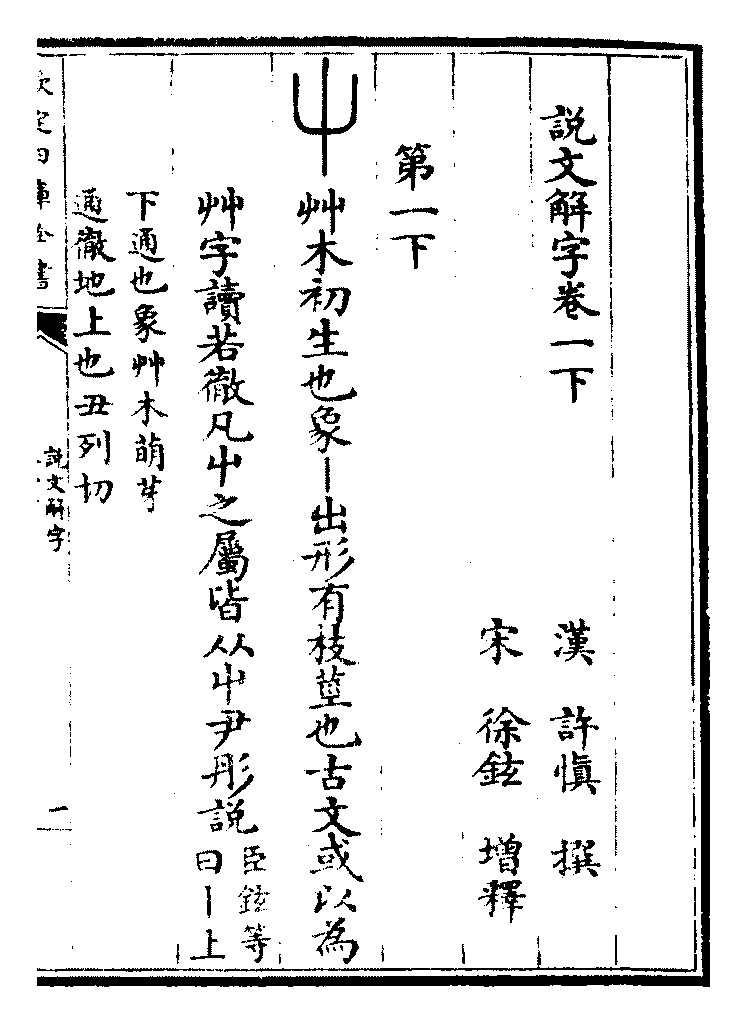 説文解字卷一下
漢 許慎 撰
宋 徐鉉 增釋
第一下
屮 艸木初生也象丨出形有枝莖也古文或以為
艸字讀若徹凡屮之屬皆从屮尹彤説 臣鉉等
曰丨上
下通也象艸木萌芽
通徹地上也丑列切
欽定四庫全書
説文解字
一